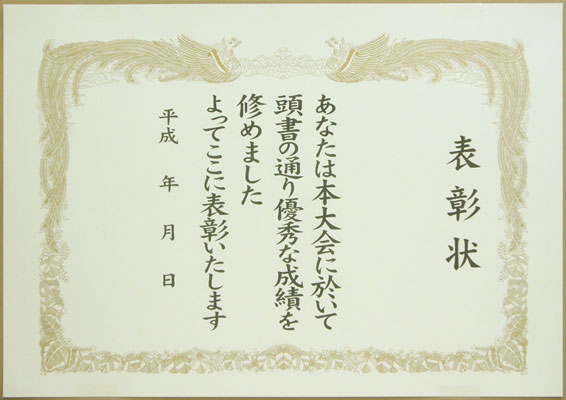 表彰状
あなたは本大会に於いて
頭書の通り優秀な成績を
修めました
よってここに表彰いたします
平成　年　月　日